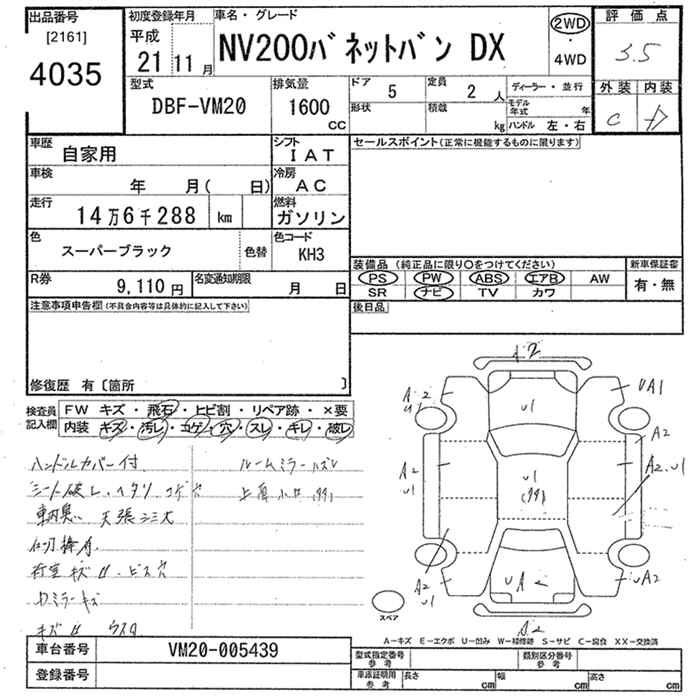 出品番号 初度登録年月 車名・グレード 2WD 評価点
[2161] 平成 NV200バネットバン DX ・ 3.5
4035 21 11月 4WD
型式 排気量 ドア 5 定員 2人 ディーラー・並行 外装 内装
DBF-VM20 1600 cc 形状 積載 kg モデル年式 年 C D
ハンドル 左・右
車歴 自家用 シフト IAT セールスポイント(正常に機能するものに限ります)
車検 年 月( 日) 冷房 AC
走行 14万6千288 km 燃料 ガソリン
色 スーパーブラック 色替 色コード KH3
装備品(純正品に限り〇をつけてください) 新車保証書
R券 9,110円 名変通知期限 月 日 PS PW ABS エアB AW 有・無
SR ナビ TV カワ
注意事項申告欄(不具合内容等は具体的に記入して下さい) 後日品
修復歴 有〔箇所 〕
検査員 FW キズ・飛石・ヒビ割・リペア跡・×要
記入欄 内装 キズ・汚レ・コゲ・穴・スレ・キレ・破レ
ハンドルカバー付 ルームミラーハズレ
シート破レ、ヘタリ コゲ穴
車内臭い 天張シミ大
荷室キズ凹・ビス穴
ミラーキズ
キズ凹
A2
A2 U1 U1 UA1
A2
A2 U1 U1 A2.U1
A2 U1 UA UA2
A2
スペア
A-キズ E-エクボ U-凹み W-補修跡 S-サビ C-腐食 XX-交換済
車台番号 VM20-005439 型式指定番号 参考 類別区分番号 参考
登録番号 車庫証明用 参考 長さ cm 幅 cm 高さ cm